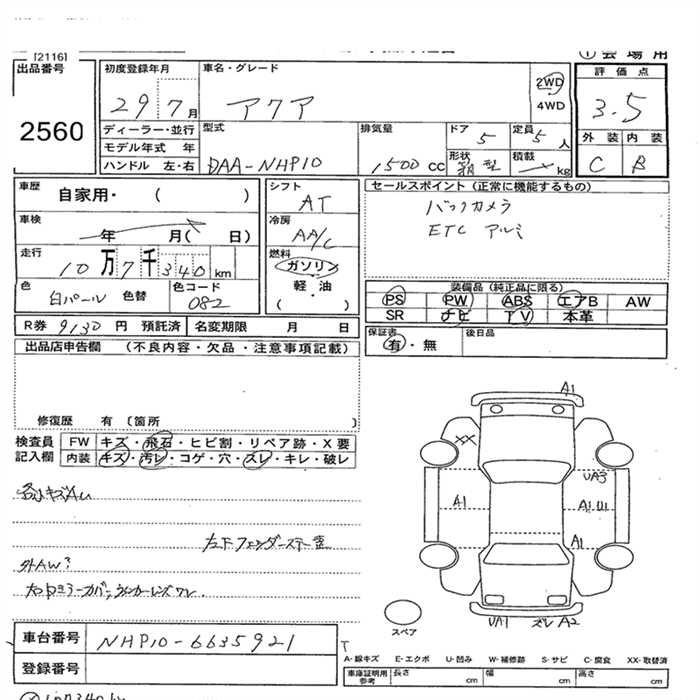 [2116]
① 会場用
出品番号
2560
初度登録年月
29 7月
車名・グレード
アクア
2WD
4WD
評価点
3.5
外装 内装
C B
ディーラー・並行
モデル年式 年
ハンドル 左・右
型式
DAA-NHP10
排気量
1500 cc
ドア
5
定員
5人
形状
箱型
積載
kg
車歴
自家用・( )
車検
年 月( 日)
走行
10万7千340km
色
白パール 色替
色コード
082
シフト
AT
冷房
AA/C
燃料
ガソリン
軽・油
( )
セールスポイント(正常に機能するもの)
バックカメラ
ETC アルミ
装備品(純正品に限る)
PS PW ABS エアB AW
SR ナビ TV 本革
保証書
有・無
後日品
R券 9130円 預託済 名変期限 月 日
出品店申告欄 (不良内容・欠品・注意事項記載)
修復歴 有〔箇所 〕
検査員
記入欄
FW キズ・飛石・ヒビ割・リペア跡・X要
内装 キズ・汚レ・コゲ・穴・スレ・キレ・破レ
左下フェンダーステー
外AW?
A1
XX
UA3
A1
A1
A1
UA1 ズレ A2
スペア
車台番号
NHP10-6635921
登録番号
A-線キズ E-エクボ U-凹み W-補修跡 S-サビ C-腐食 XX-取替済
車庫証明用
参考
長さ cm 幅 cm 高さ cm